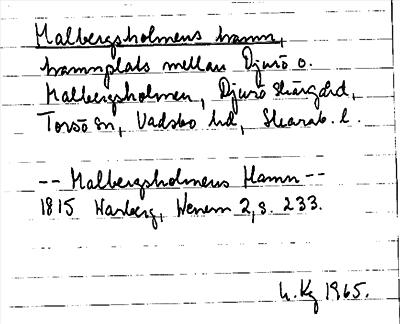 Malbergsholmens hamn,
hamnplats mellan Djurö o.
Malbergsholmen, Djurö skärgård,
Torsö sn, Vadsbo hd, Skarab. l.
-- Malbergsholmens Hamn --
1815 Warberg, Wenern 2, s. 233.
h. Kg 1965.